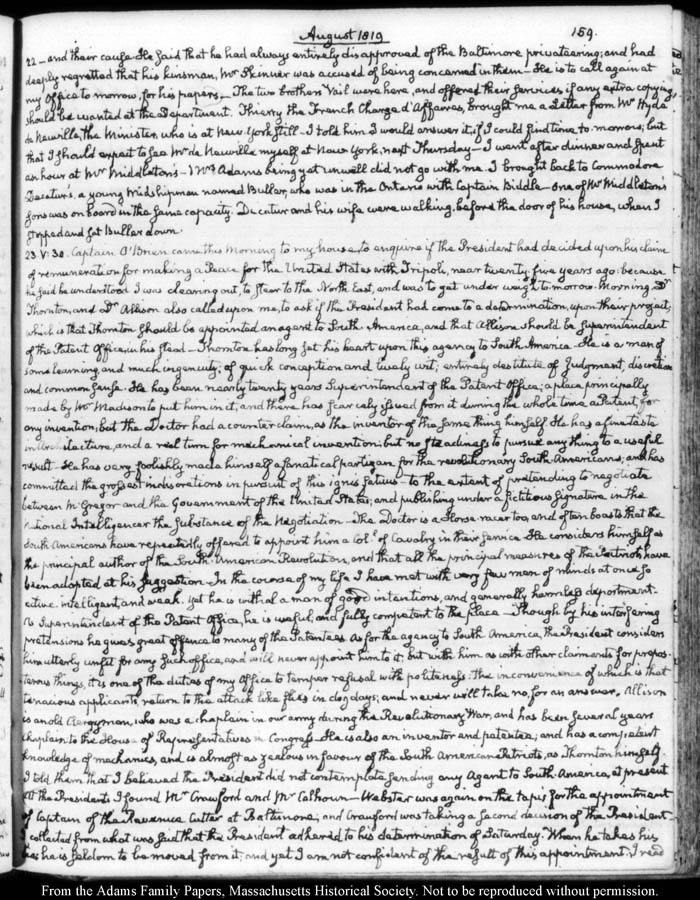 August 1819
159.
22 – and their cause. He said that he had always entirely disapproved of the Baltimore privateering; and had
deeply regretted that his kinsman, Mr Skinner was accused of being concerned in them – He is to call again at
my Office to morrow, for his papers – The two brothers Vail were here, and offered their services if any extra copying,
should be wanted at the Department. Thierry the French Chargé d'Affaires, brought me a Letter from Mr Hyde
de Neuville, the Minister, who is at New York still – I told him I would answer it, if I could find time to morrow; but
that I should expect to see Mr de Neuville myself at New York, next Thursday – I went after dinner and spent
an hour at Mr Middleton's – Mrs Adams being yet unwell did not go with me. I brought back to Commodore
Decatur's, a young Midshipman named Bullar, who was in the Ontario with Captain Biddle – One of Mr Middleton's
sons was on board in the same capacity. Decatur and his wife were walking before the door of his house, when I
stopped and set Bullar down.
23. V:30. Captain O'Brien came this morning to my house, to enquire if the President had decided upon his claim
of remuneration for making a Peace for the United States with Tripoli, near twenty five years ago: because
he said he understood I was clearing out, to steer to the North East, and was to get under weigh to-morrow Morning. Dr
Thornton, and Dr Allison also called upon me, to ask if the President had come to a determination, upon their project;
which is that Thornton should be appointed an agent to South America, and that Allison should be Superintendent
of the Patent Office, in his stead – Thornton has long set his heart upon this agency to South America. He is a man of
some learning, and much ingenuity; of quick conception and lively wit; entirely destitute of Judgment, discretion
and common sense. He has been nearly twenty years Superintendent of the Patent Office; a place principally
made by Mr Madison to put him in it, and there has scarcely issued from it during the whole time a Patent, for
any invention, but the Doctor had a counter claim, as the inventor of the same thing himself. He has a fine taste
in Architecture, and a real turn for mechanical invention; but no steadiness to pursue any thing to a useful
result. He has very foolishly made himself a fanatical partizan for the revolutionary South Americans; and has
committed the grossest indiscretions in pursuit of this ignis fatuus – to the extent of pretending to negotiate
between McGregor and the Government of the United States; and publishing under a fictitious signature in the
National Intelligencer the substance of the Negotiation – The Doctor is a Horse racer too, and often boasts that the
South Americans have repeatedly offered to appoint him a Col. of Cavalry in their service. He considers himself as
the principal author of the South American Revolution, and that all the principal measures of the Patriots have
been adopted at his suggestion – In the course of my life I have met with very few men of minds at once so
active. intelligent, and weak. yet he is withal a man of good intentions, and generally harmless deportment.
As Superintendent of the Patent Office, he is useful, and fully competent to the place – Though by his interfering
pretensions he gives great offence to many of the Patentees. As for the agency to South America, the President considers
him utterly unfit for any such office, and will never appoint him to it; but with him as with other claimants for prepos-
terous things, it is one of the duties of my Office to temper refusal with politeness. The inconvenience of which is that
tenacious applicants, return to the attack like flies in dog days; and never will take no, for an answer, Allison
is an old Clergyman, who was a chaplain in our army during the Revolutionary War, and has been several years
chaplain to the House of Representatives in Congress – He is also an inventor and patentee; and has a competent
knowledge of mechanics, and is almost as zealous in favour of the South American Patriots, as Thornton himself.
I told them that I believed the President did not contemplate sending any Agent to South-America, at present
At the Presidents I found Mr Crawford and Mr Calhoun – Webster was again on the tapis for the appointment
of Captain of the Revenue Cutter at Baltimore; and Crawford was taking a second decision of the President
I collected from what was said that the President adhered to his determination of Saturday. When he takes his
he is seldom to be moved from it; and yet I am not confident of the result of this appointment. I read
From the Adams Family Papers, Massachusetts Historical Society. Not to be reproduced without permission.